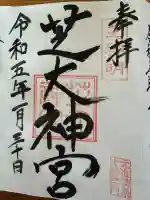 奉拝
芝大神宮
令和五年一月三十日